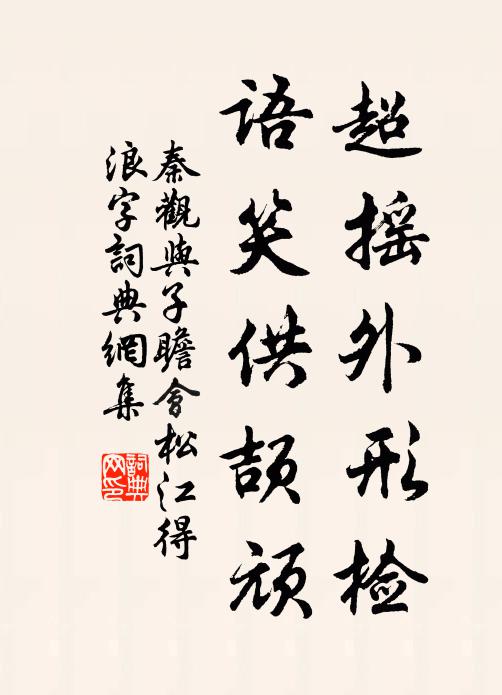 超摇外形检
语笑供颉颃
秦觀與子瞻會松江得
浪字詞典網集
詞典
网印